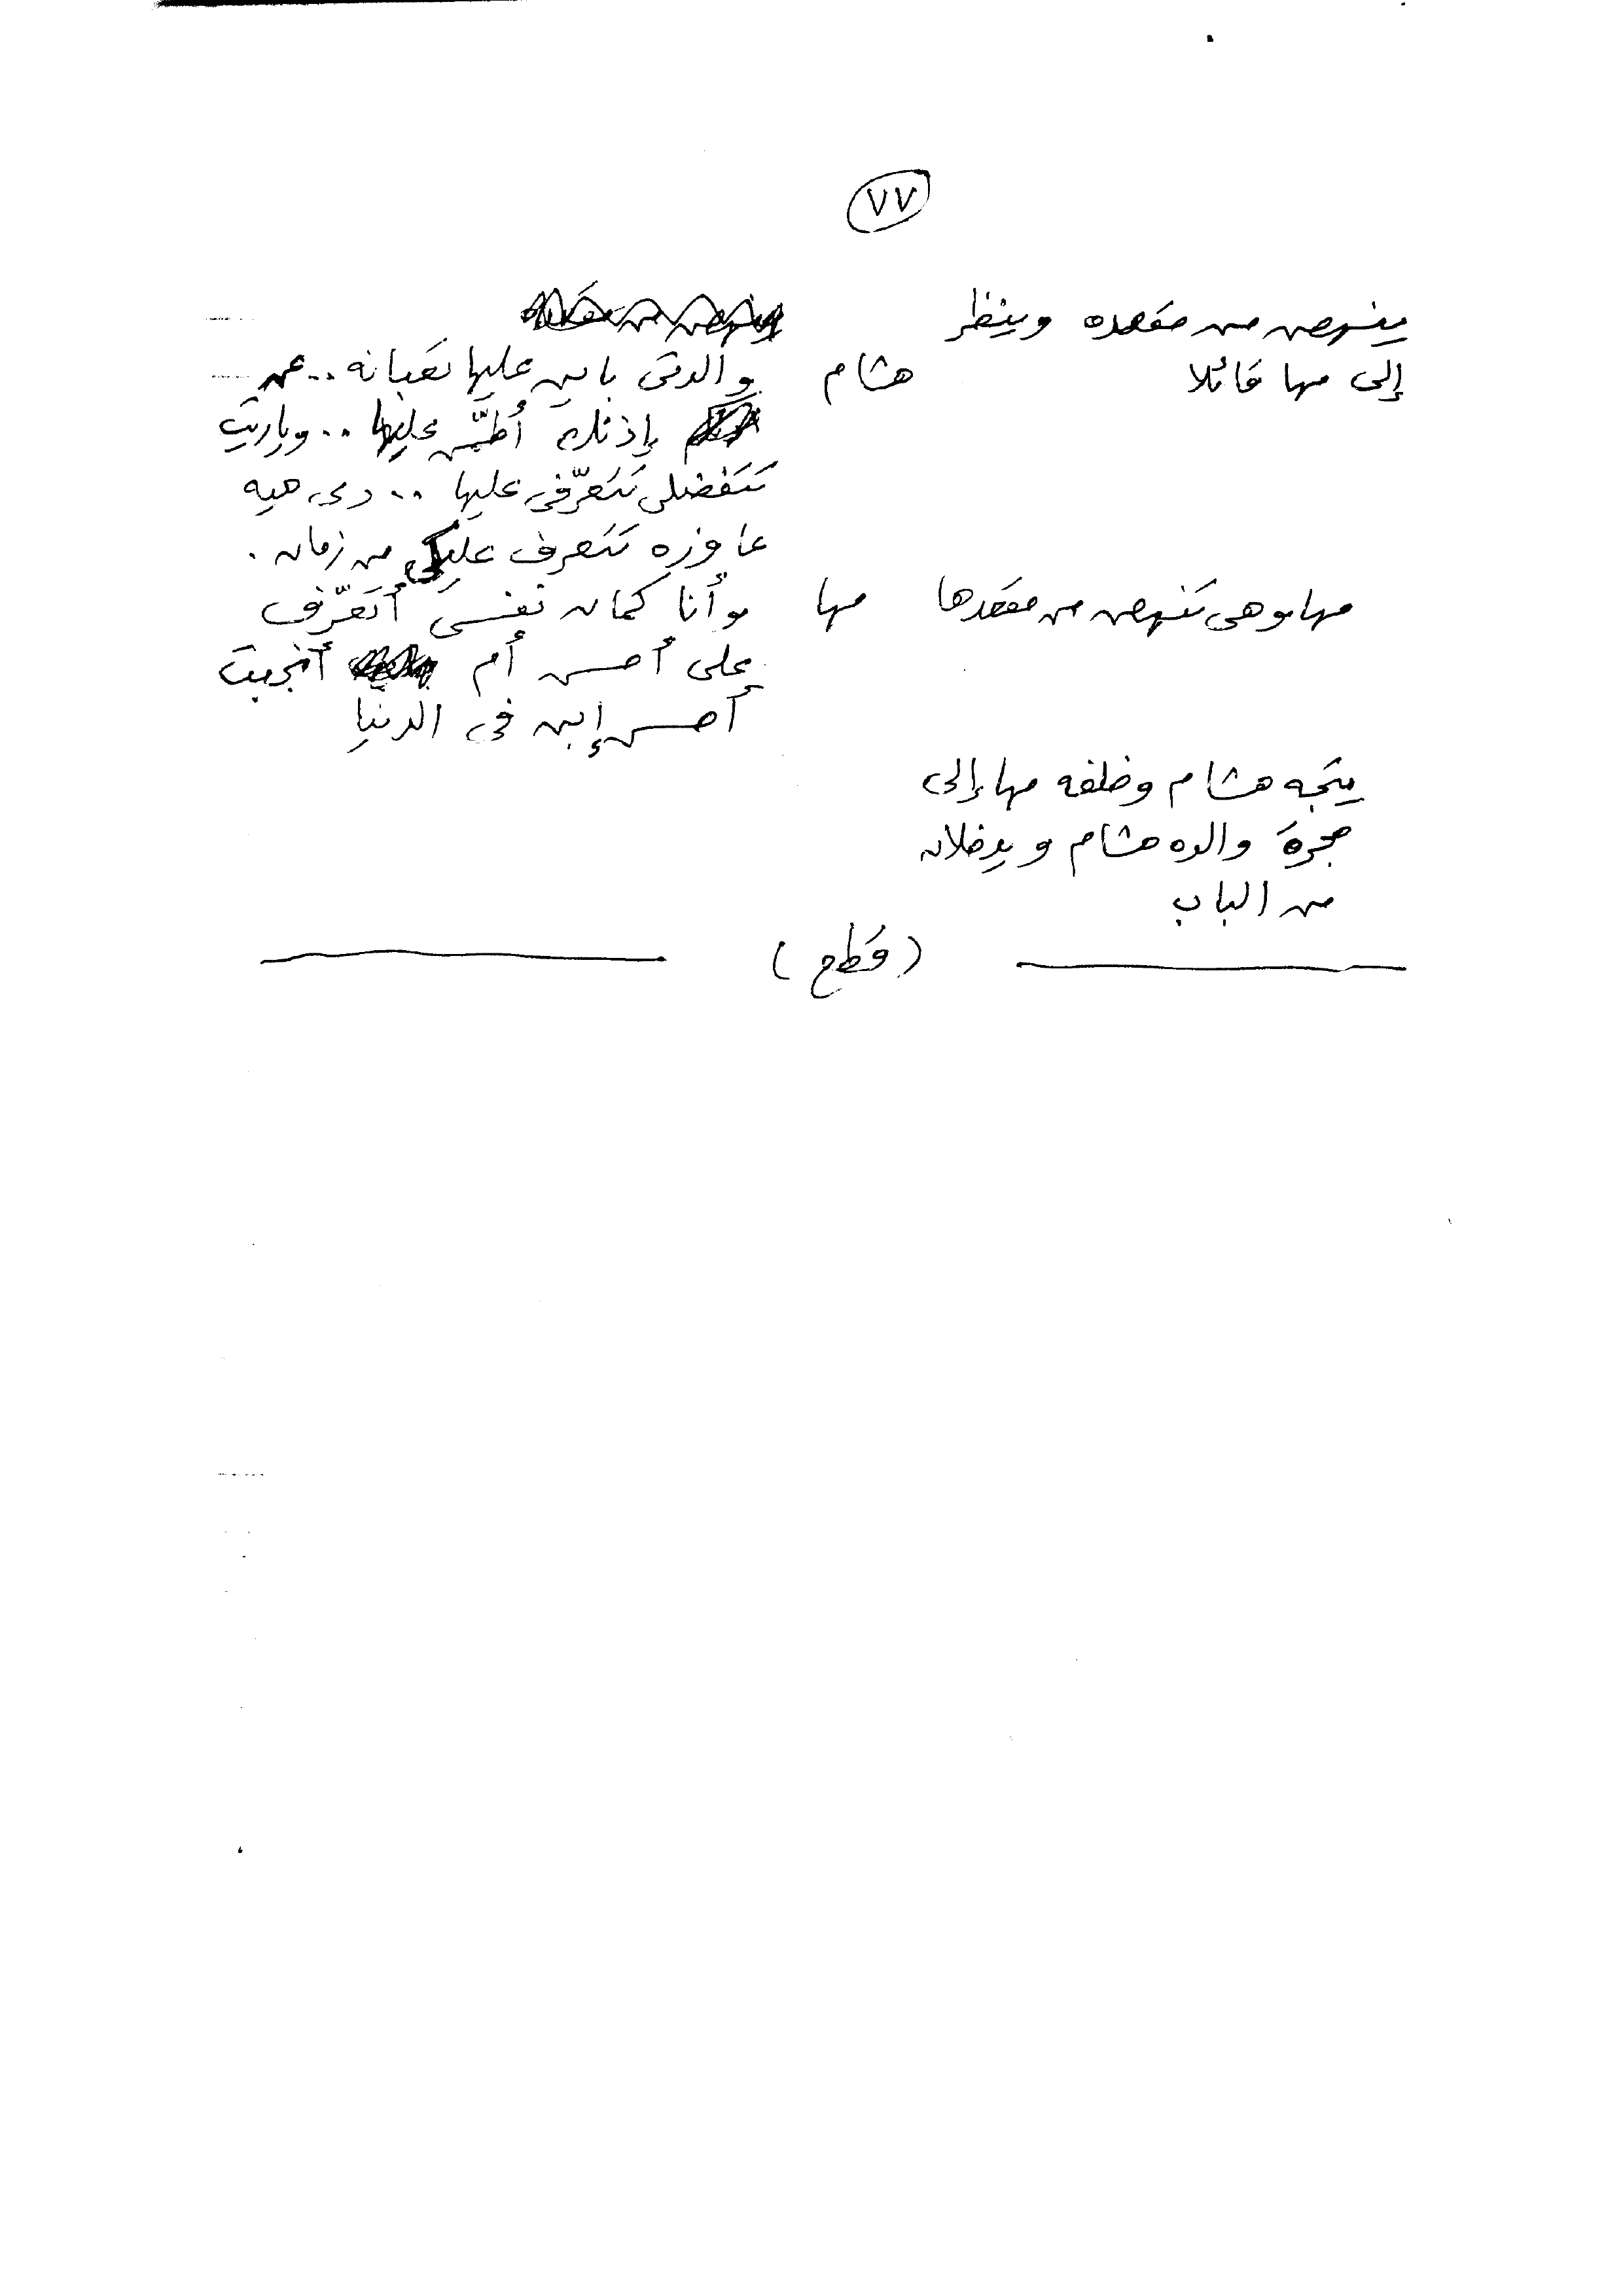 ٧٧
ينهض من مقعده وينظر
إلى مها قائلا هشام والدتى باين عليها تعبانه .. عن
إذنك أطمّن عليها .. وياريت
تتفضلى تتعرّفى عليها .. دى هيه
عاوزه تتعرف عليكى من زمان .
مها وهى تنهض من مقعدها مها وأنا كمان نفسى أتعرّف
على أحسن أم أنجبت
أحسن إبن فى الدنيا
يتجه هشام وخلفه مها إلى
حجرة والده هشام ويدخلان
من الباب
( قطع )